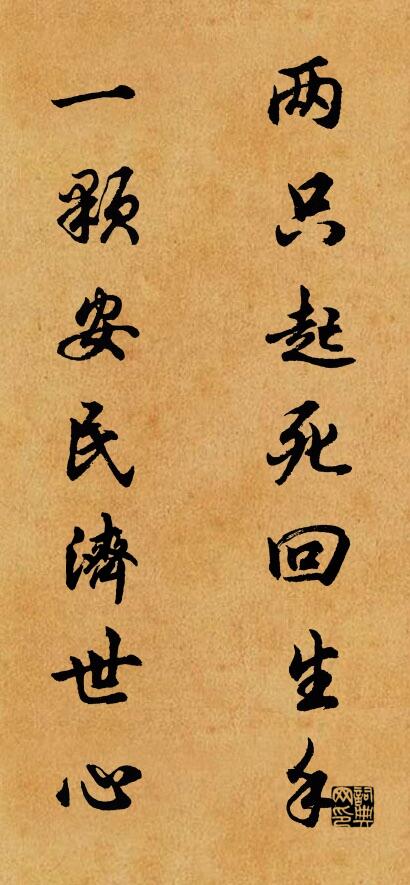 两只起死回生手
一颗安民濟世心
詞典网印